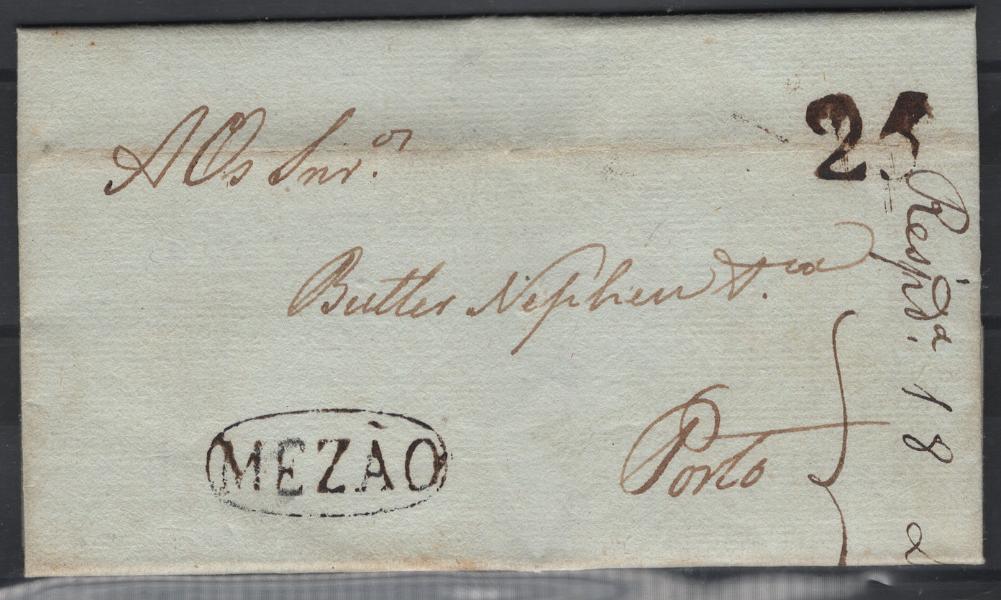 AOs Snr.es
25
Butler Nephew &.ca
Porto
MEZÀO
Resp.da 18